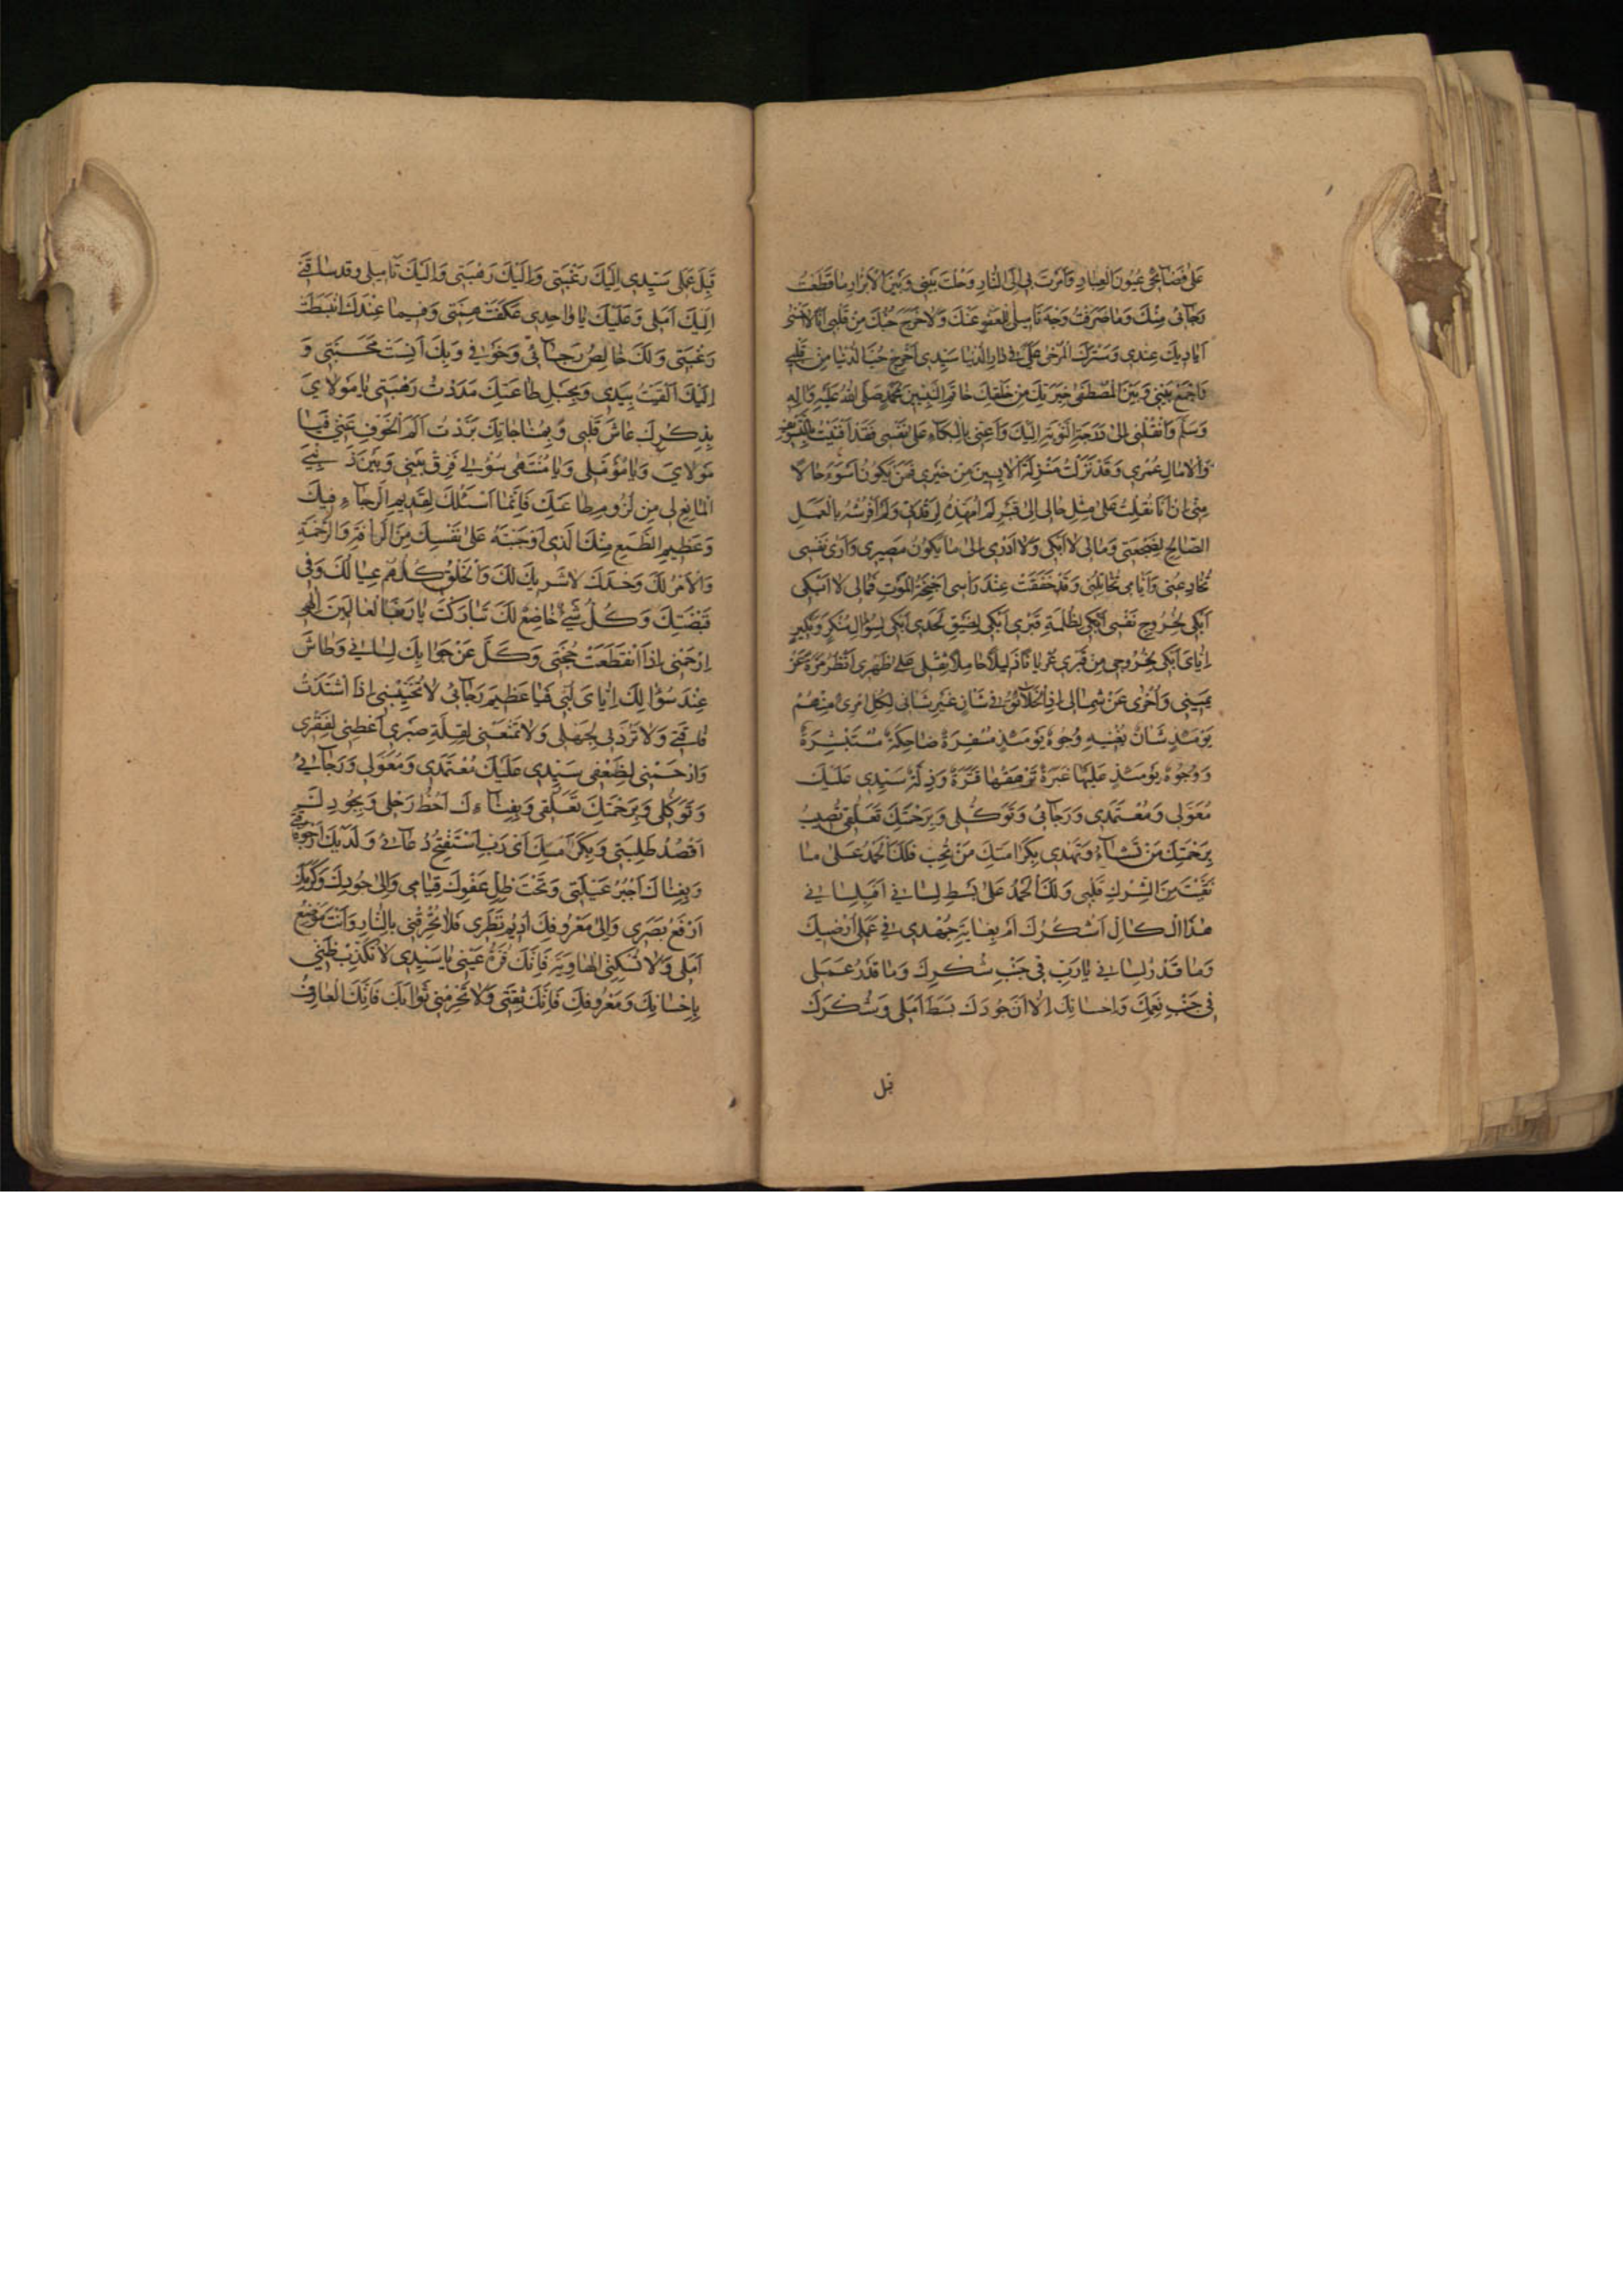 عَلىٰ فَضَائِحِي عُيُونَ الْعِبَادِ وَاَمَرْتَ بِي اِلَى النَّارِ وَحُلْتَ بَيْنِي وَبَيْنَ الْاَبْرَارِ مَا قَطَعْتُ
رَجَائِي مِنْكَ وَمَا صَرَفْتُ وَجْهَ تَاْمِيلِي لِلْعَفْوِ عَنْكَ وَلَا خَرَجَ حُبُّكَ مِنْ قَلْبِي اَنَا لَا اَنْسٰى
اَيَادِيَكَ عِنْدِي وَسَتْرَكَ الْمُرْخٰى عَلَيَّ فِي دَارِ الدُّنْيَا سَيِّدِي اَخْرِجْ حُبَّ الدُّنْيَا مِنْ قَلْبِي
وَاجْمَعْ بَيْنِي وَبَيْنَ الْمُصْطَفٰى خِيَرَتِكَ مِنْ خَلْقِكَ خَاتَمِ النَّبِيِّينَ مُحَمَّدٍ صَلَّى اللّٰهُ عَلَيْهِ وَاٰلِهِ
وَسَلَّمَ وَانْقُلْنِي اِلىٰ دَرَجَةِ التَّوْبَةِ اِلَيْكَ وَاَعِنِّي بِالْبُكَاءِ عَلىٰ نَفْسِي فَقَدْ اَفْنَيْتُ بِالتَّسْوِيفِ
وَالْاٰمَالِ عُمْرِي وَقَدْ نَزَلْتُ مَنْزِلَةَ الْاٰيِسِينَ مِنْ خَيْرِي فَمَنْ يَكُونُ اَسْوَءَ حَالًا
مِنِّي اِنْ اَنَا نُقِلْتُ عَلىٰ مِثْلِ حَالِي اِلىٰ قَبْرٍ لَمْ اُمَهِّدْهُ لِرَقْدَتِي وَلَمْ اَفْرُشْهُ بِالْعَمَلِ
الصَّالِحِ لِضَجْعَتِي وَمَالِي لَا اَبْكِي وَلَا اَدْرِي اِلىٰ مَا يَكُونُ مَصِيرِي وَاَرٰى نَفْسِي
تُخَادِعُنِي وَاَيَّامِي تُخَاتِلُنِي وَقَدْ خَفَقَتْ عِنْدَ رَاْسِي اَجْنِحَةُ الْمَوْتِ فَمَالِي لَا اَبْكِي
اَبْكِي لِخُرُوجِ نَفْسِي اَبْكِي لِظُلْمَةِ قَبْرِي اَبْكِي لِضِيقِ لَحْدِي اَبْكِي لِسُؤَالِ مُنْكَرٍ وَنَكِيرٍ
اِيَّايَ اَبْكِي لِخُرُوجِي مِنْ قَبْرِي عُرْيَانًا ذَلِيلًا حَامِلًا ثِقْلِي عَلىٰ ظَهْرِي اَنْظُرُ مَرَّةً عَنْ
يَمِينِي وَاُخْرٰى عَنْ شِمَالِي اِذِ الْخَلَائِقُ فِي شَاْنٍ غَيْرِ شَاْنِي لِكُلِّ امْرِئٍ مِنْهُمْ
يَوْمَئِذٍ شَاْنٌ يُغْنِيهِ وُجُوهٌ يَوْمَئِذٍ مُسْفِرَةٌ ضَاحِكَةٌ مُسْتَبْشِرَةٌ
وَوُجُوهٌ يَوْمَئِذٍ عَلَيْهَا غَبَرَةٌ تَرْهَقُهَا قَتَرَةٌ وَذِلَّةٌ سَيِّدِي عَلَيْكَ
مُعَوَّلِي وَمُعْتَمَدِي وَرَجَائِي وَتَوَكُّلِي وَبِرَحْمَتِكَ تَعَلُّقِي تُصِيبُ
بِرَحْمَتِكَ مَنْ تَشَاءُ وَتَهْدِي بِكَرَامَتِكَ مَنْ تُحِبُّ فَلَكَ الْحَمْدُ عَلىٰ مَا
نَقَّيْتَ مِنَ الشِّرْكِ قَلْبِي وَلَكَ الْحَمْدُ عَلىٰ بَسْطِ لِسَانِي اَفَبِلِسَانِي
هٰذَا الْكَالِّ اَشْكُرُكَ اَمْ بِغَايَةِ جُهْدِي فِي عَمَلِي اُرْضِيكَ
وَمَا قَدْرُ لِسَانِي يَا رَبِّ فِي جَنْبِ شُكْرِكَ وَمَا قَدْرُ عَمَلِي
فِي جَنْبِ نِعَمِكَ وَاِحْسَانِكَ اِلَّا اَنَّ جُودَكَ بَسَطَ اَمَلِي وَشُكْرَكَ
قبل
قَبِلَ عَمَلِي سَيِّدِي اِلَيْكَ رَغْبَتِي وَاِلَيْكَ رَهْبَتِي وَاِلَيْكَ تَاْمِيلِي وقد ساقني
اِلَيْكَ اَمَلِي وَعَلَيْكَ يَا وَاحِدِي عَكَفَتْ هِمَّتِي وَفِيمَا عِنْدَكَ انْبَسَطَتْ
رَغْبَتِي وَلَكَ خَالِصُ رَجَائِي وَخَوْفِي وَبِكَ اَنِسَتْ مَحَبَّتِي وَ
اِلَيْكَ اَلْقَيْتُ بِيَدِي وَبِحَبْلِ طَاعَتِكَ مَدَدْتُ رَهْبَتِي يَا مَوْلَايَ
بِذِكْرِكَ عَاشَ قَلْبِي وَبِمُنَاجَاتِكَ بَرَّدْتُ اَلَمَ الْخَوْفِ عَنِّي فَيَا
مَوْلَايَ وَيَا مُؤَمَّلِي وَيَا مُنْتَهٰى سُؤْلِي فَرِّقْ بَيْنِي وَبَيْنَ ذَنْبِيَ
الْمَانِعِ لِي مِنْ لُزُومِ طَاعَتِكَ فَاِنَّمَا اَسْئَلُكَ لِقَدِيمِ الرَّجَاءِ فِيكَ
وَعَظِيمِ الطَّمَعِ مِنْكَ الَّذِي اَوْجَبْتَهُ عَلىٰ نَفْسِكَ مِنَ الرَّاْفَةِ وَالرَّحْمَةِ
وَالْاَمْرُ لَكَ وَحْدَكَ لَا شَرِيكَ لَكَ وَالْخَلْقُ كُلُّهُمْ عِيَالُكَ وَفِي
قَبْضَتِكَ وَكُلُّ شَيْءٍ خَاضِعٌ لَكَ تَبَارَكْتَ يَا رَبَّ الْعَالَمِينَ اِلٰهِي
اِرْحَمْنِي اِذَا انْقَطَعَتْ حُجَّتِي وَكَلَّ عَنْ جَوَابِكَ لِسَانِي وَطَاشَ
عِنْدَ سُؤَالِكَ اِيَّايَ لُبِّي فَيَا عَظِيمَ رَجَائِي لَا تُخَيِّبْنِي اِذَا اشْتَدَّتْ
فَاقَتِي وَلَا تَرُدَّنِي لِجَهْلِي وَلَا تَمْنَعْنِي لِقِلَّةِ صَبْرِي اَعْطِنِي لِفَقْرِي
وَارْحَمْنِي لِضَعْفِي سَيِّدِي عَلَيْكَ مُعْتَمَدِي وَمُعَوَّلِي وَرَجَائِي
وَتَوَكُّلِي وَبِرَحْمَتِكَ تَعَلُّقِي وَبِفِنَاءِكَ اَحُطُّ رَحْلِي وَبِجُودِكَ
اَقْصُدُ طَلِبَتِي وَبِكَرَمِكَ اَيْ رَبِّ اَسْتَفْتِحُ دُعَائِي وَلَدَيْكَ اَرْجُو
وَبِغِنَاكَ اَجْبُرُ عَيْلَتِي وَتَحْتَ ظِلِّ عَفْوِكَ قِيَامِي وَاِلىٰ جُودِكَ وَكَرَمِكَ
اَرْفَعُ بَصَرِي وَاِلىٰ مَعْرُوفِكَ اُدِيمُ نَظَرِي فَلَا تُحْرِقْنِي بِالنَّارِ وَاَنْتَ مَوْضِعُ
اَمَلِي وَلَا تُسْكِنِّي الْهَاوِيَةَ فَاِنَّكَ قُرَّةُ عَيْنِي يَا سَيِّدِي لَا تُكَذِّبْ ظَنِّي
بِاِحْسَانِكَ وَمَعْرُوفِكَ فَاِنَّكَ ثِقَتِي وَلَا تَحْرِمْنِي ثَوَابَكَ فَاِنَّكَ الْعَارِفُ